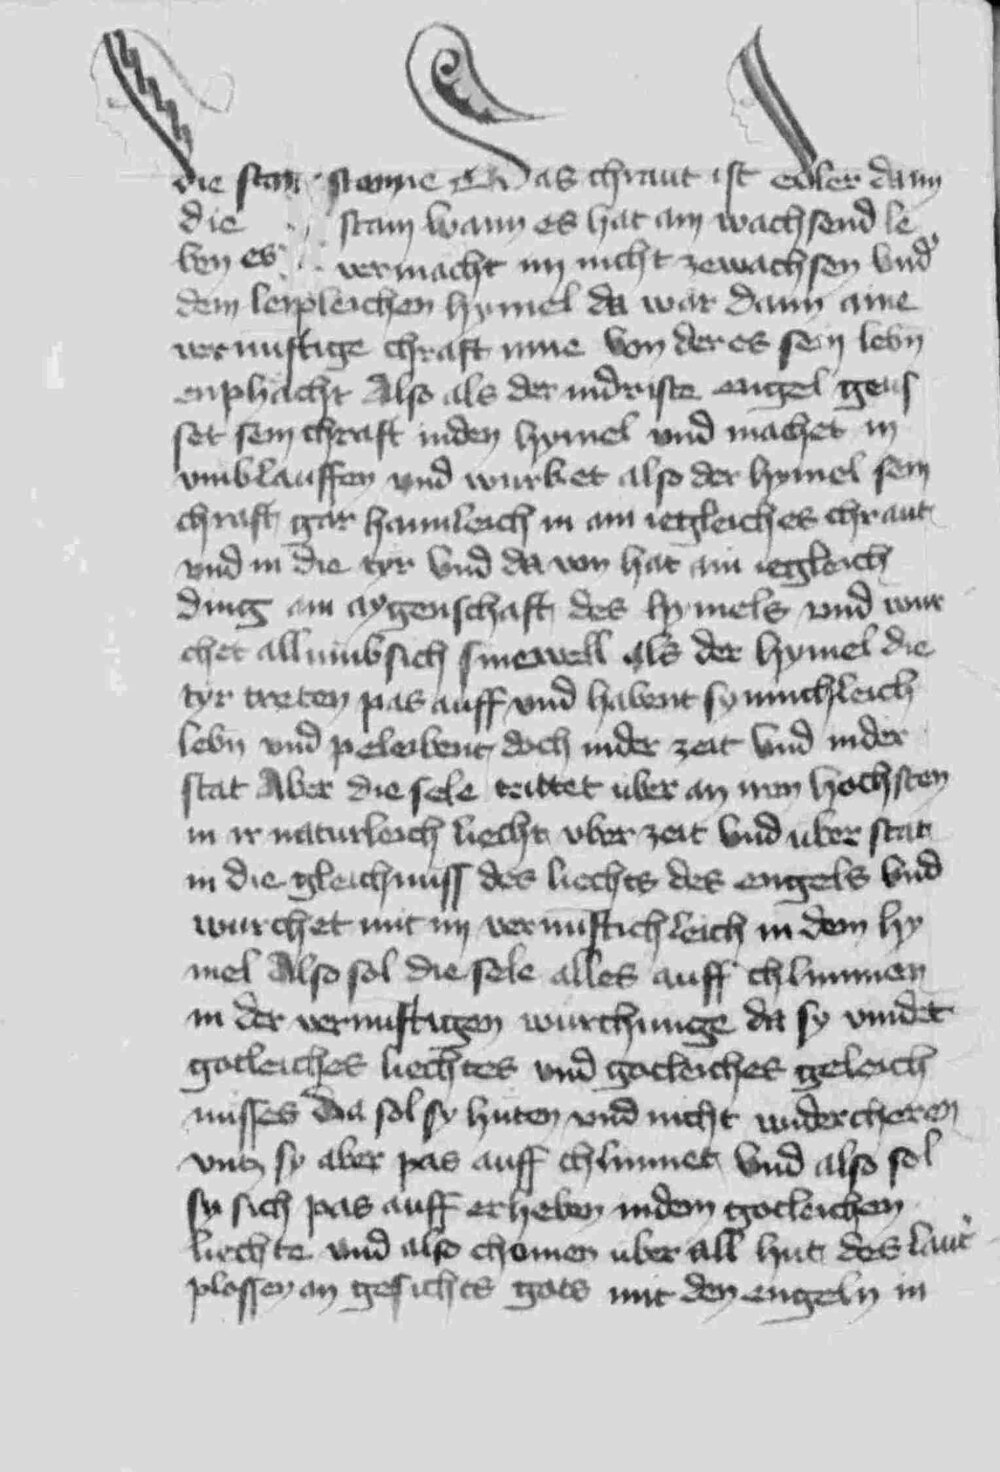 die stain stainne Das chraut ist edler dann
die stain wann es hat ain wachsend le
ben es vermacht im nicht zewachsen vnd
dem leipleichen hymel da wär dann aine
vernuftige chraft inne von der es sein lebn
enphächt Also als der nidriste engel geus
set sein chraft in den hymel vnd machet in
vmblauffen vnd wurket also der hymel sein
chraft gar haimleich in ain iegleiches chraut
vnd in die tyr vnd da von hat ain iegleich
ding ain aygenschaft des hymels vnd wur
chet all vmb sich sinewell als der hymel die
tyr treten pas auff vnd habent synnichleich
lebn vnd peleibent doch in der zeit vnd in der
stat Aber die sele trittet uber an irm hochsten
in ir naturleich liecht vber zeit vnd uber stat
in die gleichnuss des liechts des engels vnd
wurchet mit im vernuftichleich in dem hy
mel Also sol die sele alles auff chlimmen
in der vernuftigen wurchunge da sy vindet
gotleiches liechtes vnd gotleiches geleich
nusses Da sol sy huten vnd nicht widercheren
vntz sy aber pas auff chlimmet vnd also sol
sy sich pas auff erheben in dem gotleichen
liechte vnd also chomen uber all hut des laut
plossen an gesichts gots mit den engeln in